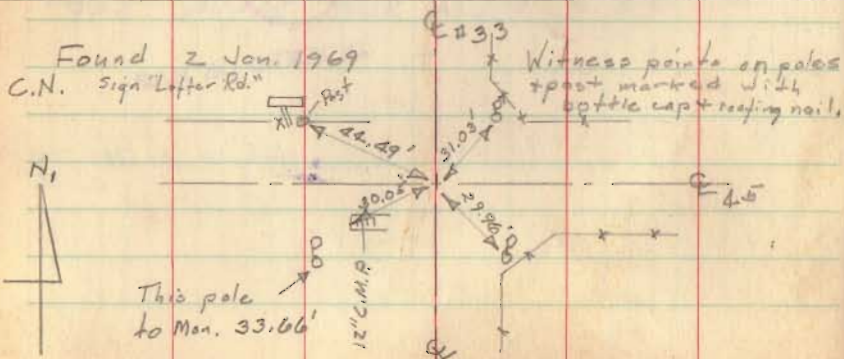 ℄ #33
Found 2 Jan. 1969
C.N. Sign "Lofter Rd."
Post
Witness points on poles
+ post marked with
bottle cap + roofing nail.
44.49'
31.03'
N,
30.05'
29.96'
℄ 45
12" C.M.P.
This pole
to Mon. 33.66'
℄